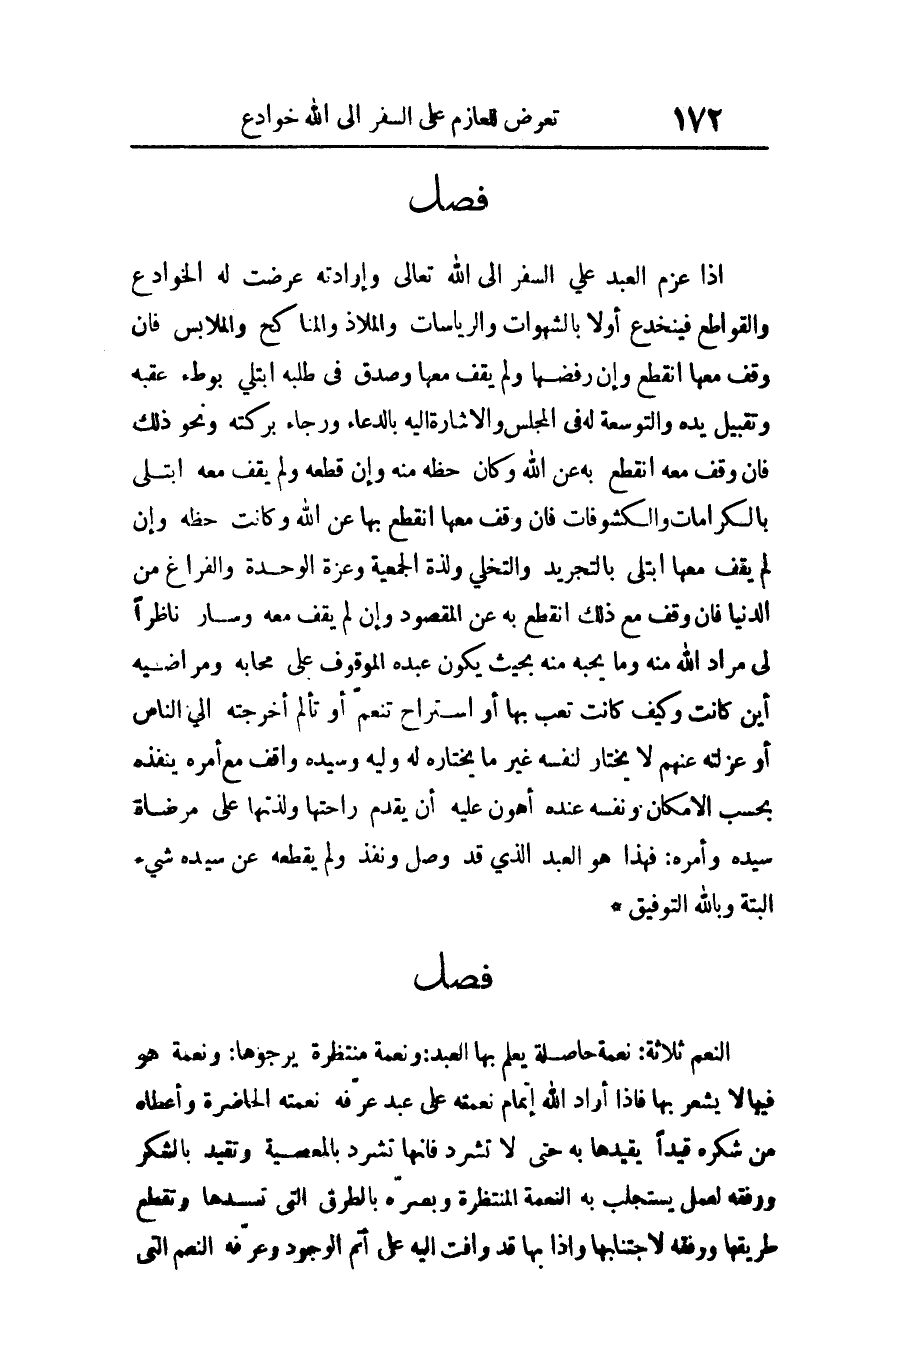 ١٧٢ تعرض للعازم على السفر الى الله خوادع
فصل
اذا عزم العبد علي السفر الى الله تعالى وإرادته عرضت له الخوادع
والقواطع فينخدع أولا بالشهوات والرياسات والملاذ والمناكح والملابس فان
وقف معها انقطع وإن رفضها ولم يقف معها وصدق فى طلبه ابتلي بوطء عقبه
وتقبيل يده والتوسعة له فى المجلس والاشارة اليه بالدعاء ورجاء بركته ونحو ذلك
فان وقف معه انقطع به عن الله وكان حظه منه وإن قطعه ولم يقف معه ابتلى
بالكرامات والكشوفات فان وقف معها انقطع بها عن الله وكانت حظه وإن
لم يقف معها ابتلى بالتجريد والتخلي ولذة الجمعية وعزة الوحدة والفراغ من
الدنيا فان وقف مع ذلك انقطع به عن المقصود وإن لم يقف معه وسار ناظراً
لى مراد الله منه وما يحبه منه بحيث يكون عبده الموقوف على محابه ومراضيه
أين كانت وكيف كانت تعب بها أو استراح تنعمّ أو تألم أخرجته الي الناس
أو عزلته عنهم لا يختار لنفسه غير ما يختاره له وليه وسيده واقف مع أمره ينفذه
بحسب الامكان ونفسه عنده أهون عليه أن يقدم راحتها ولذتها على مرضاة
سيده وأمره: فهذا هو العبد الذي قد وصل ونفذ ولم يقطعه عن سيده شيء
البتة وبالله التوفيق *
فصل
النعم ثلاثة: نعمة حاصلة يعلم بها العبد: ونعمة منتظرة يرجوها: ونعمة هو
فيها لا يشعر بها فاذا أراد الله إتمام نعمته على عبد عرّفه نعمته الحاضرة وأعطاه
من شكره قيداً يقيدها به حتى لا تشرد فانها تشرد بالمعصية وتقيد بالشكر
ووفقه لعمل يستجلب به النعمة المنتظرة وبصرّه بالطرق التى تسدها وتقطع
طريقها ووفقه لاجتنابها واذا بها قد وافت اليه على أتم الوجود وعرّفه النعم التى